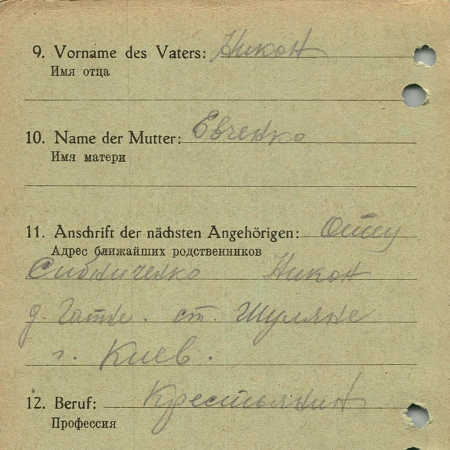 9. Vorname des Vaters: Никон
Имя отца
10. Name der Mutter: Евченко
Имя матери
11. Anschrift der nächsten Angehörigen: Отцу
Адрес ближайших родственников
Никон
д. Гатне. ст. Шуляне
г. Киев.
12. Beruf: Крестьянин
Профессия